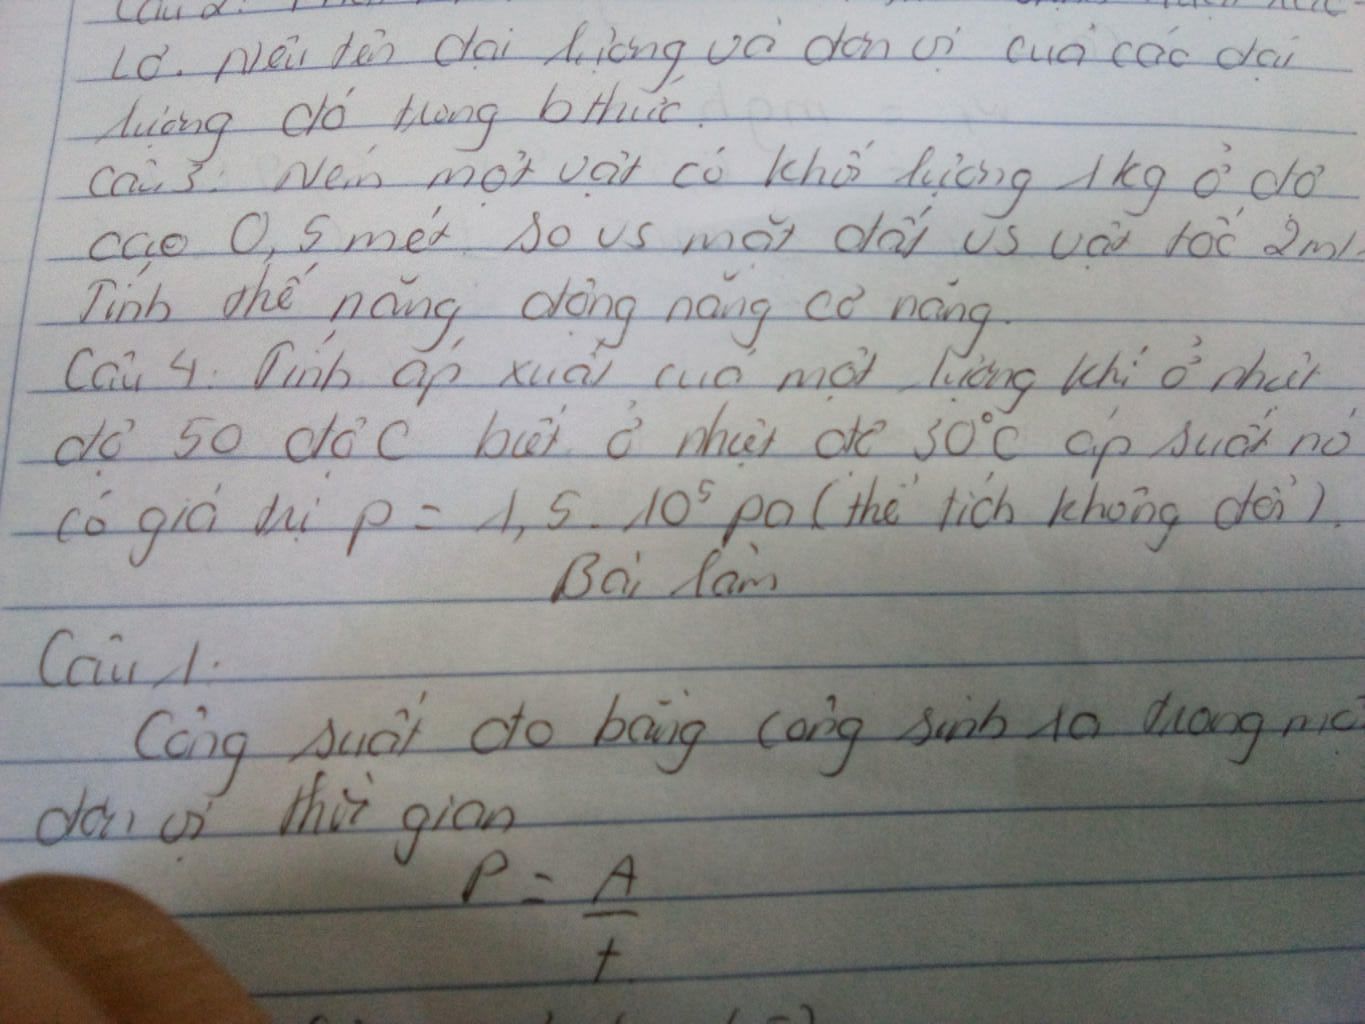 Câu 2.
Lơ. Nêu tên đại lượng và đơn vị của các đại
lượng đó trong bthức.
Câu 3. Ném một vật có khối lượng 1kg ở độ
cao 0,5 mét so vs mặt đất vs vật tốc 2m/
Tính thế năng động năng cơ năng.
Câu 4. Tính áp xuất của một lượng khí ở nhiệt
độ 50 độ C biết ở nhiệt độ 30°C áp suất nó
có giá trị p = 1,5. 10⁵ pa (thể tích không đổi).
Bài làm
Câu 1.
Công suất đo bằng công sinh ra trong
đơn vị thời gian
P = A
t